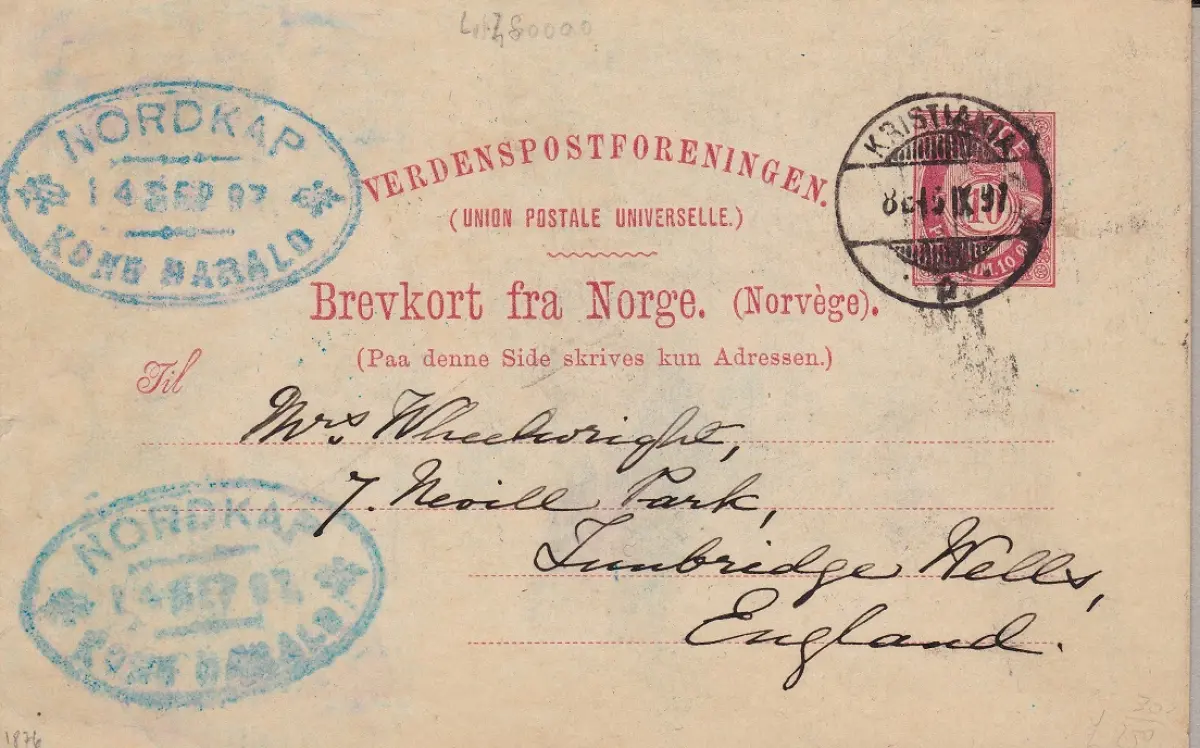 NORDKAP
14 SEP 97
KONG HARALD
VERDENSPOSTFORENINGEN.
(UNION POSTALE UNIVERSELLE.)
Brevkort fra Norge. (Norvège).
(Paa denne Side skrives kun Adressen.)
KRISTIANIA
IX 97
10
Til
Mrs Wheelwright,
7. Nevill Park,
Tunbridge Wells,
England.
NORDKAP
14 SEP 97
KONG HARALD
1876